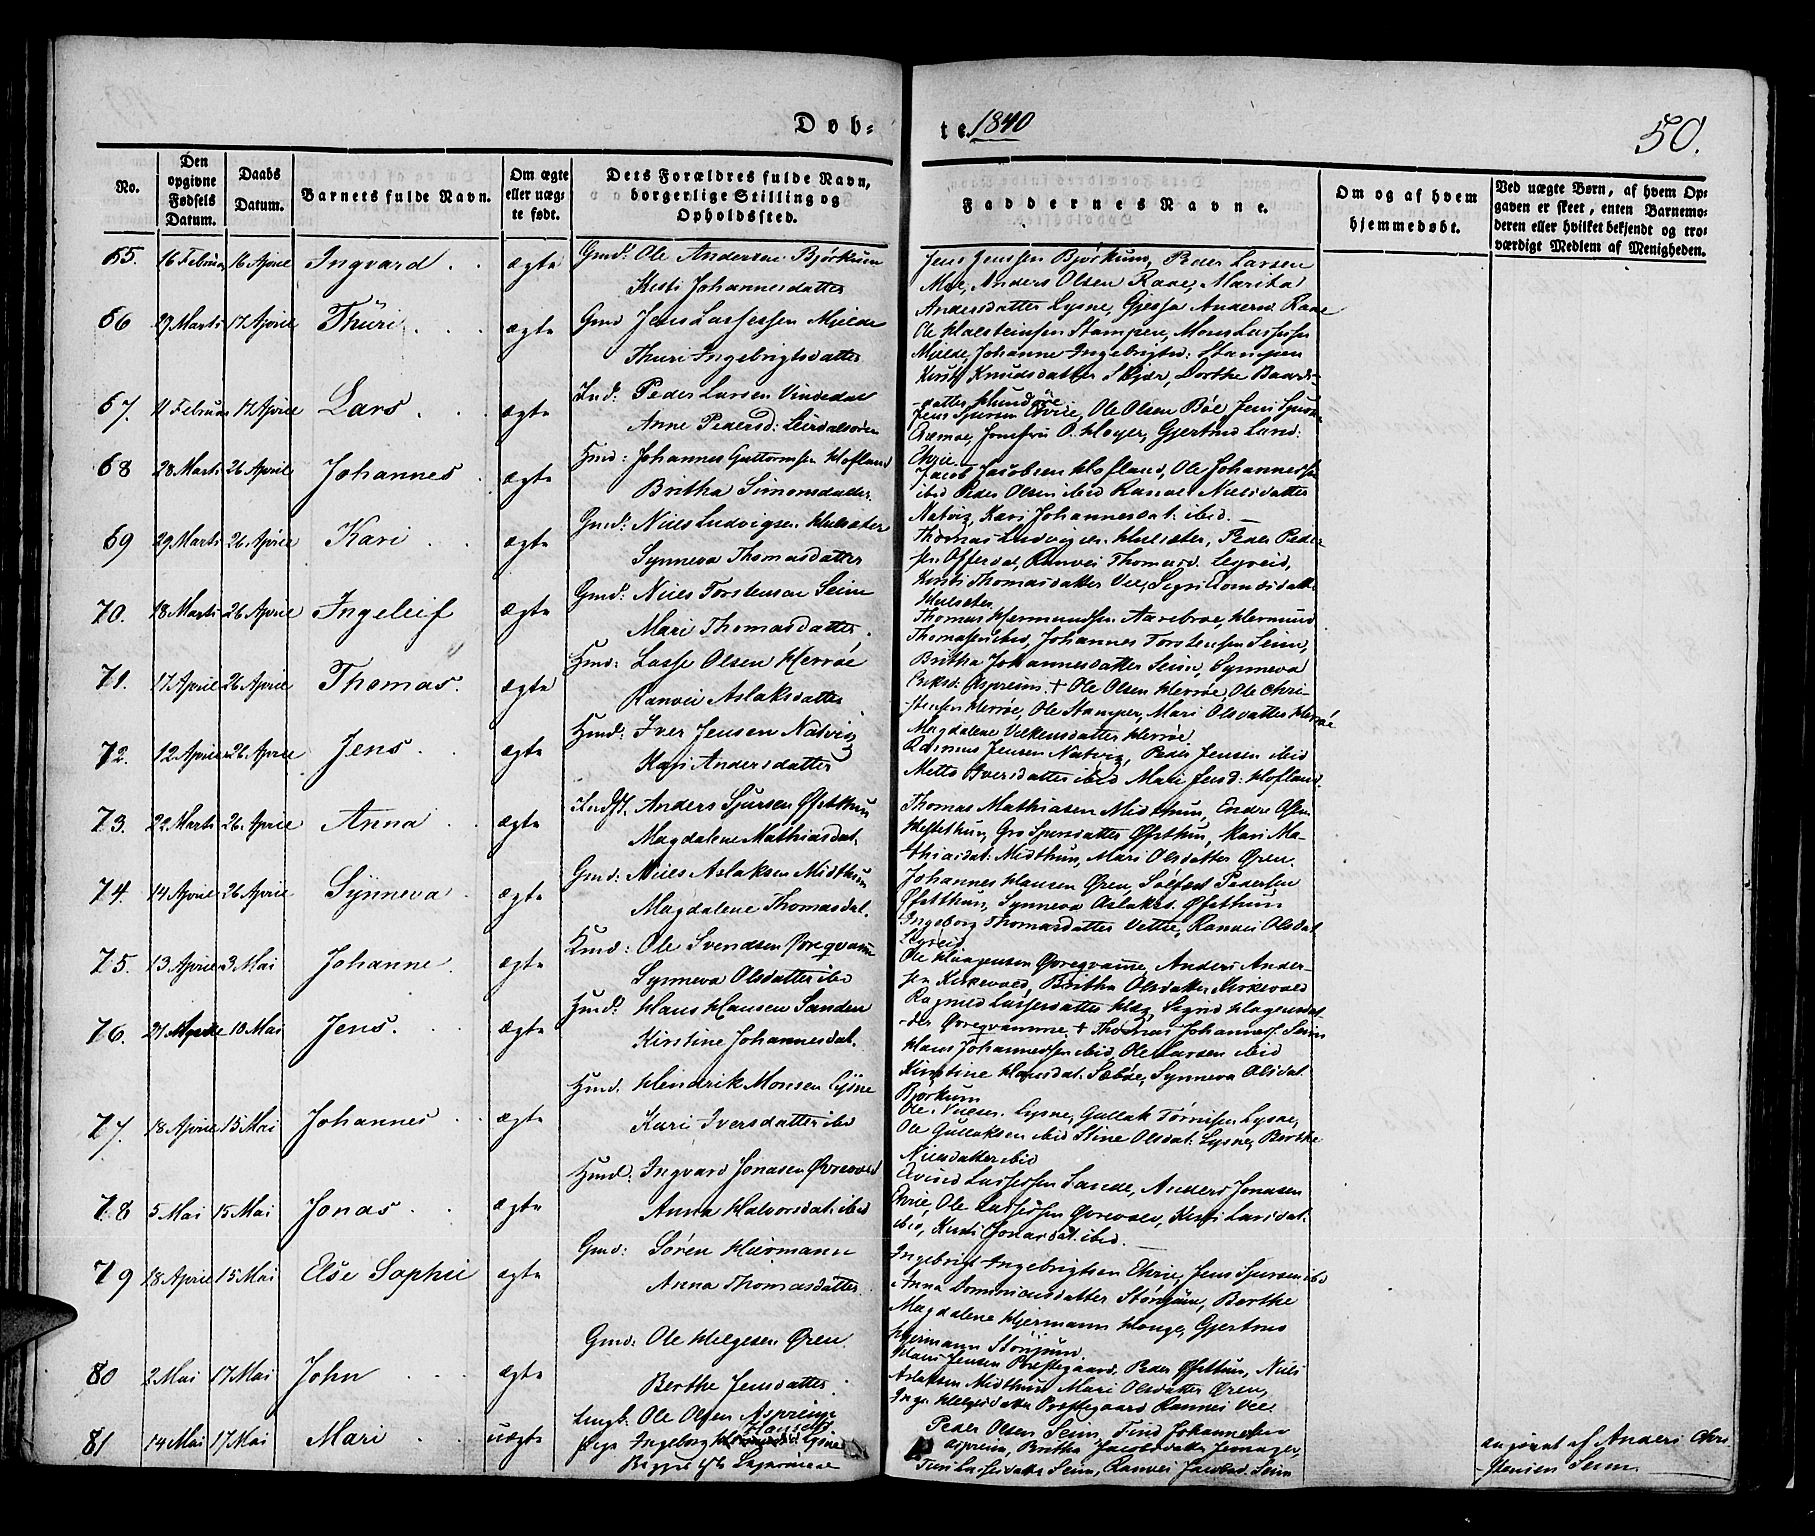 Døb-
te 1840
50.
No.
Den opgivne Fødsels Datum.
Daabs Datum.
Barnets fulde Navn.
Om ægte eller uægte født.
Dets Forældres fulde Navn, borgerlige Stilling og Opholdssted.
Faddernes Navne.
Om og af hvem hjemmedøbt.
Ved uægte Børn, af hvem Opgaven er skeet, enten Barnemoderen eller hvilket bekjendt og troværdigt Medlem af Menigheden.
65. 16 Februar 16 Aprile Ingvard ægte Gmd: Ole Andersen Bjørkum
Kirsti Johannesdatter
Jens Jensen Bjørkum, Peder Larsen
Moe, Anders Olsen Raae, Marita
Andersdatter Lysne, Gjesja Andersd. Raae
66 29 Marts 17 Aprile Thuri ægte Gmd Jens Lassesen Mjelde
Thuri Ingebrigtsdatter
Ole Halsteinsen Stampen, Mons Lassesen
Mjelde, Johanne Ingebrigtsd: Stampen
Kirsti Knudsdatter Skjær, Dorthe Baards-
datter Hundøre
67. 11 Februar 17 Aprile Lars ægte Ind: Peder Larsen Vindedal
Anne Pedersd: Leirdalsøren
Jens Sjursen Ehrie, Ole Olsen Bøe, Jens
Jomfru O. Høyer, Gjertrud
Ehrie
68 28 Marts 26 Aprile Johannes ægte Hmd: Johannes Guttormsen Hofland
Britha Simonsdatter
Jacob Jacobsen Hofland, Ole Johannessen
ibid Peder Olsen ibid Ranvei Nielsdatter
Natvig, Kari Johannesdat: ibid.
69 29 Marts 26 Aprile Kari ægte Gmd: Niels Ludvigsen Hulsæter
Synneva Thomasdatter
Thomas Ludvigsen Hulsæter, Peder Peder-
sen Offerdal, Ranvei Thomasd. Lysreid,
Kirsti Thomasdatter Vee, Sigri
Hulsæter
70. 18 Marts 26 Aprile Ingeleif ægte Gmd: Niels Torstensen Seim
Mari Thomasdatter
Thomas Hermundsen Aarebroe, Hermund
Thomasen ibid, Johannes Torstensen Seim,
Britha Johannesdatter Seim, Synneva
Eriksd: Aspreim.
71. 17 Aprile 26 Aprile Thomas. ægte Hmd: Lasse Olsen Herrøe
Ranvei Aslaksdatter
+ Ole Olsen Herrøe, Ole Chri-
stensen Herrøe, Ole Stampen, Mari Olsdatter Herrøe
Magdalene Villumsdatter Herrøe
72. 12 Aprile 26 Aprile Jens ægte Hmd: Iver Jensen Natvig
Kari Andersdatter
Rasmus Jensen Natvig, Peder Jensen ibid
Mette Iversdatter ibid Mari Jensd: Hofland.
73. 22 Marts 26. Aprile Anna ægte Indst. Anders Sjursen Øfsthun
Magdalene Mathiasdat.
Thomas Mathiasen Midthun, Endre Olsen
Heftethun, Gro Sjursdatter Øfsthun, Kari Ma-
thiasdat: Midthun, Mari Olsdatter Øren.
74. 14 Aprile 26 Aprile Synneva ægte Gmd: Niels Aslaksen Midthun
Magdalene Thomasdat.
Johannes Hansen Øren, Solfest Pedersen
Øfsthun, Synneva Aslaksd. Øfsthun
Ingeborg Thomasdatter Vettie, Ranvei Olsdat
Lysreid
75. 13 Aprile 3 Mai Johanne. ægte Hmd: Ole Svendsen Øvreqvamme
Synneva Olsdatter ibid
Ole Haagensen Øvreqvamme, Anders Ander-
sen Kirkevold, Britha Olsdatter Kirkevold
Ragnild Lassesdatter Hag, Sigrid Hagensdat-
der Øvreqvamme
76. 10 Mai Jens. ægte Hmd: Hans Hansen Sanden
Kirstine Johannesdat.
+ Thomas Johannesf. Seim
Hans Johannessen ibid, Ole Larsen ibid
Kirstine Hansdat. Sæbøe, Synneva Olsdat
Bjørkum
77. 18 Aprile 15 Mai Johannes ægte Hmd. Hendrik Monsen Lysne
Kari Iversdatter ibid
Ole Nielsen Lysne, Gullak Tørrisen Lysne,
Ole Gullaksen ibid Stine Olsdat: Lysne, Berthe
Nielsdatter ibid
78 5 Mai 15 Mai Jonas ægte Hmd. Ingvard Jonasen Øvrevold
Anna Halvorsdat: ibid
Eivind Lassesen Lande, Anders Jonasen
Ehrie, Ole Lassesen Øvrevold, Kirsti Larsdat.
ibid, Kirsti Jonasdat: ibid.
79 18 Aprile 15 Mai Else Sophie ægte Gmd: Søren Hiermann
Anna Thomasdatter
Ingebrigt Ingebrigtsen Ehrie, Jens Sjursen ibid
Anna Dominicusdatter Stønjum, Berthe
Magdalene Hjermann Hauge, Gjertrud
Hjermann Stønjum.
80 2 Mai 17 Mai John ægte Gmd: Ole Helgesen Øren.
Berthe Jensdatter
Hans Jensen Prestegaard, Peder Øfsthun, Niels
Aslaksen Midthun Mari Olsdatter Øren,
Inga Helgesdatter Prestegaard Ranvei Vee
81 14 Mai 17 Mai Mari uægte Ungk: Ole Olsen Aspreim
Pige Ingeborg Hansdt Lysne
Begges 1ste Leiermaal
Peder Olsen Seim, Find Johannessen
Aspreim, Britha Jacobsdatter
Lassesdatter Seim, Ranvei Jacobsd. Seim
angivet af Anders Chri-
stensen Seim.